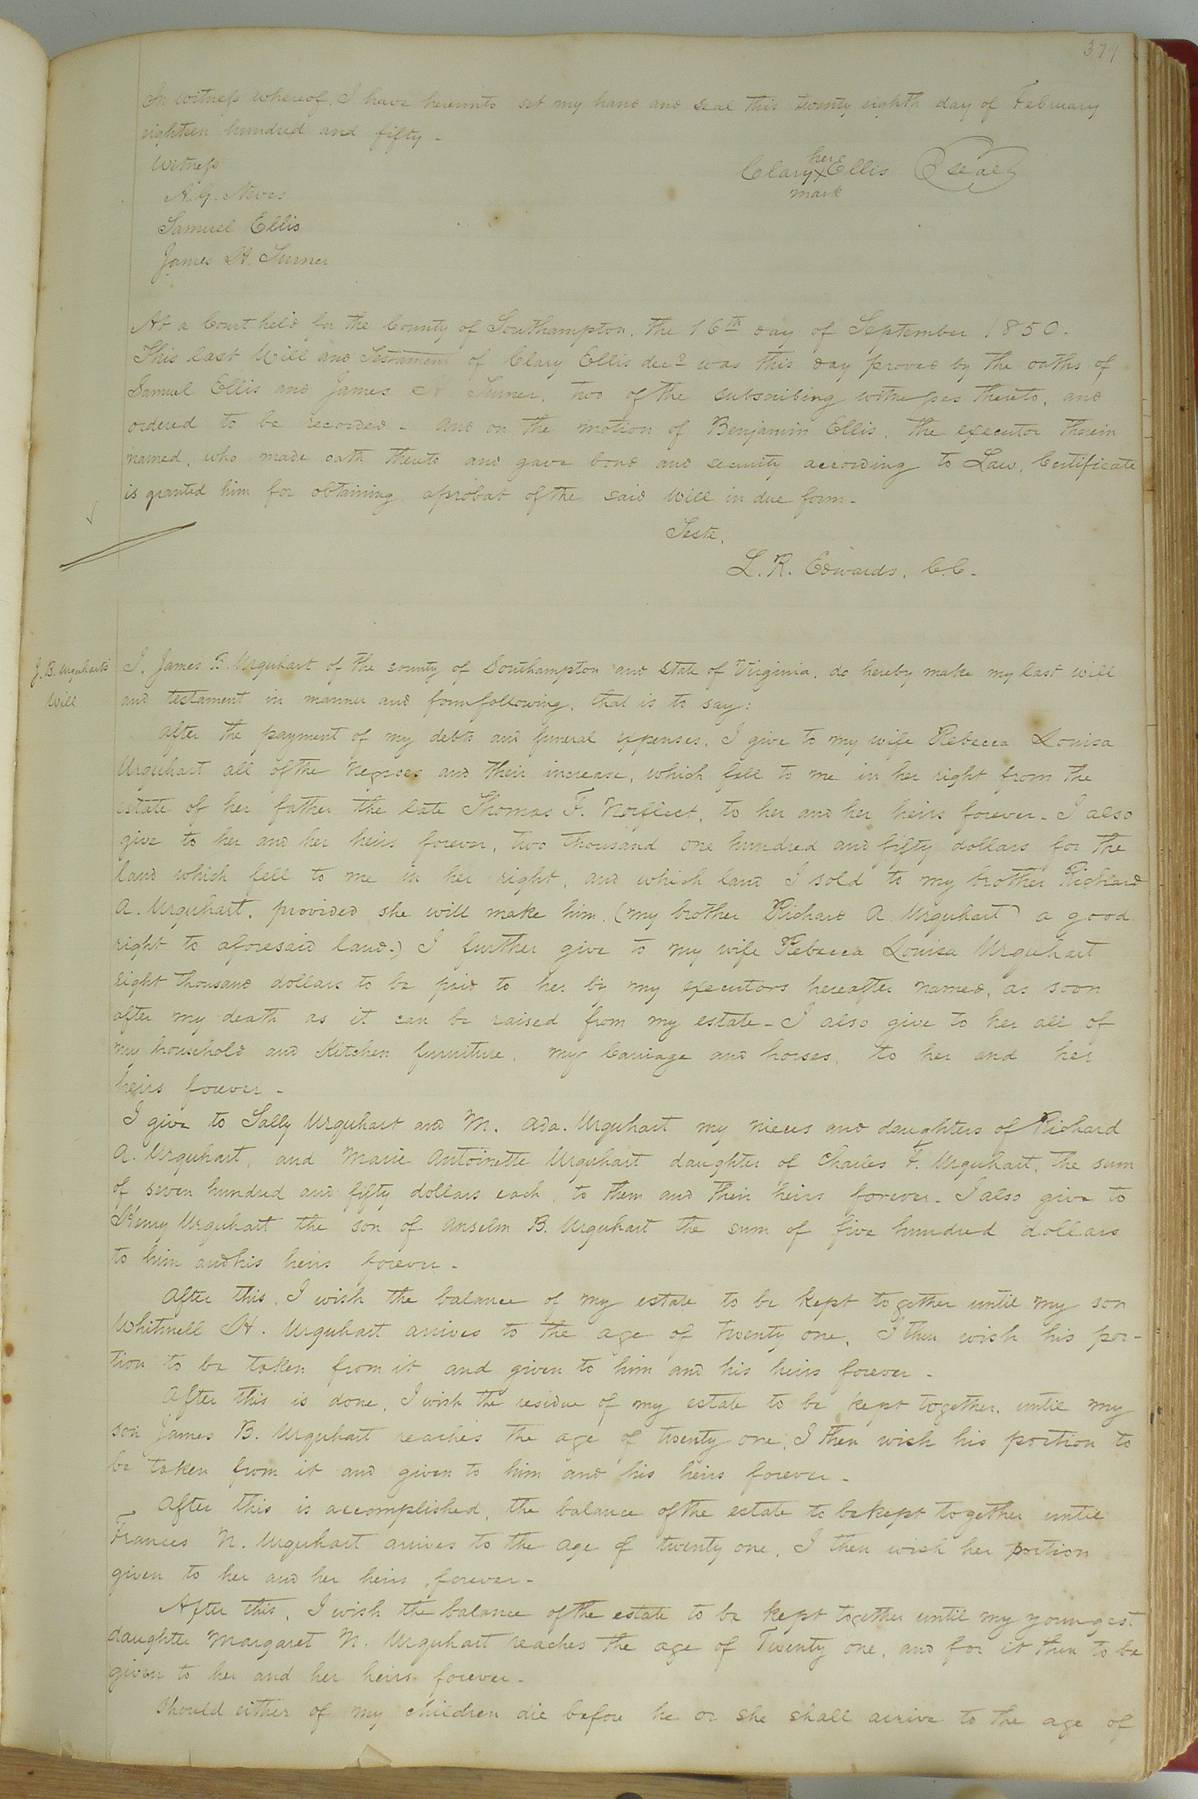 379
In witness whereof, I have hereunto set my hand and seal this twenty eighth day of February
eighteen hundred and fifty -
Witness
her
Clary X Ellis Seal
mark
A. G. Neves
Samuel Ellis
James H. Turner
At a Court held for the County of Southampton, the 16th day of September 1850.
This last Will and Testament of Clary Ellis decd was this day proved by the oaths of
Samuel Ellis and James H Turner, two of the subscribing witnesses thereto, and
ordered to be recorded - and on the motion of Benjamin Ellis, the executor therein
named, who made oath thereto and gave bond and security according to Law, Certificate
is granted him for obtaining aprobat of the said Will in due form -
Teste,
L. R. Edwards, C.C.
J. B. Urquhart's
Will
I, James B. Urquhart of the county of Southampton and State of Virginia, do hereby make my last will
and testament in manner and form following, that is to say:
After the payment of my debts and funeral expenses, I give to my wife Rebecca Louisa
Urquhart all of the Negroes and their increase, which fell to me in her right from the
estate of her father the late Thomas F. Norfleet, to her and her heirs forever - I also
give to her and her heirs forever, two thousand one hundred and fifty dollars for the
land which fell to me in her right, and which land I sold to my brother Richard
A. Urquhart, provided she will make him (my brother Richard A Urquhart) a good
right to aforesaid land.) I further give to my wife Rebecca Louisa Urquhart
eight thousand dollars to be paid to her by my executors hereafter named, as soon
after my death as it can be raised from my estate - I also give to her all of
my household and Kitchen furniture, my Carriage and horses, to her and her
heirs forever -
I give to Sally Urquhart and M. Ada. Urquhart my nieces and daughters of Richard
A. Urquhart, and Marie Antoinette Urquhart daughter of Charles F. Urquhart, the sum
of seven hundred and fifty dollars each, to them and their heirs forever - I also give to
Henry Urquhart the son of Anselm B. Urquhart the sum of five hundred dollars
to him and his heirs forever -
After this, I wish the balance of my estate to be kept together until my son
Whitmell H. Urquhart arrives to the age of twenty one, I then wish his por-
tion to be taken from it and given to him and his heirs forever -
After this is done, I wish the residue of my estate to be kept together, until my
son James B. Urquhart reaches the age of twenty one, I then wish his portion to
be taken from it and given to him and his heirs forever -
After this is accomplished, the balance of the estate to be kept together until
Frances N. Urquhart arrives to the age of twenty one, I then wish her portion
given to her and her heirs forever -
After this, I wish the balance of the estate to be kept together until my youngest
daughter Margaret N. Urquhart reaches the age of Twenty one, and for it then to be
given to her and her heirs forever -
Should either of my children die before he or she shall arrive to the age of